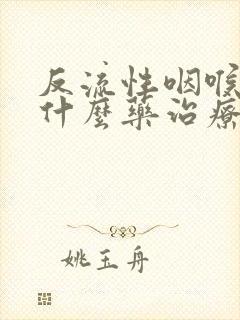 反流性咽喉
什麼藥治療
姚玉舟